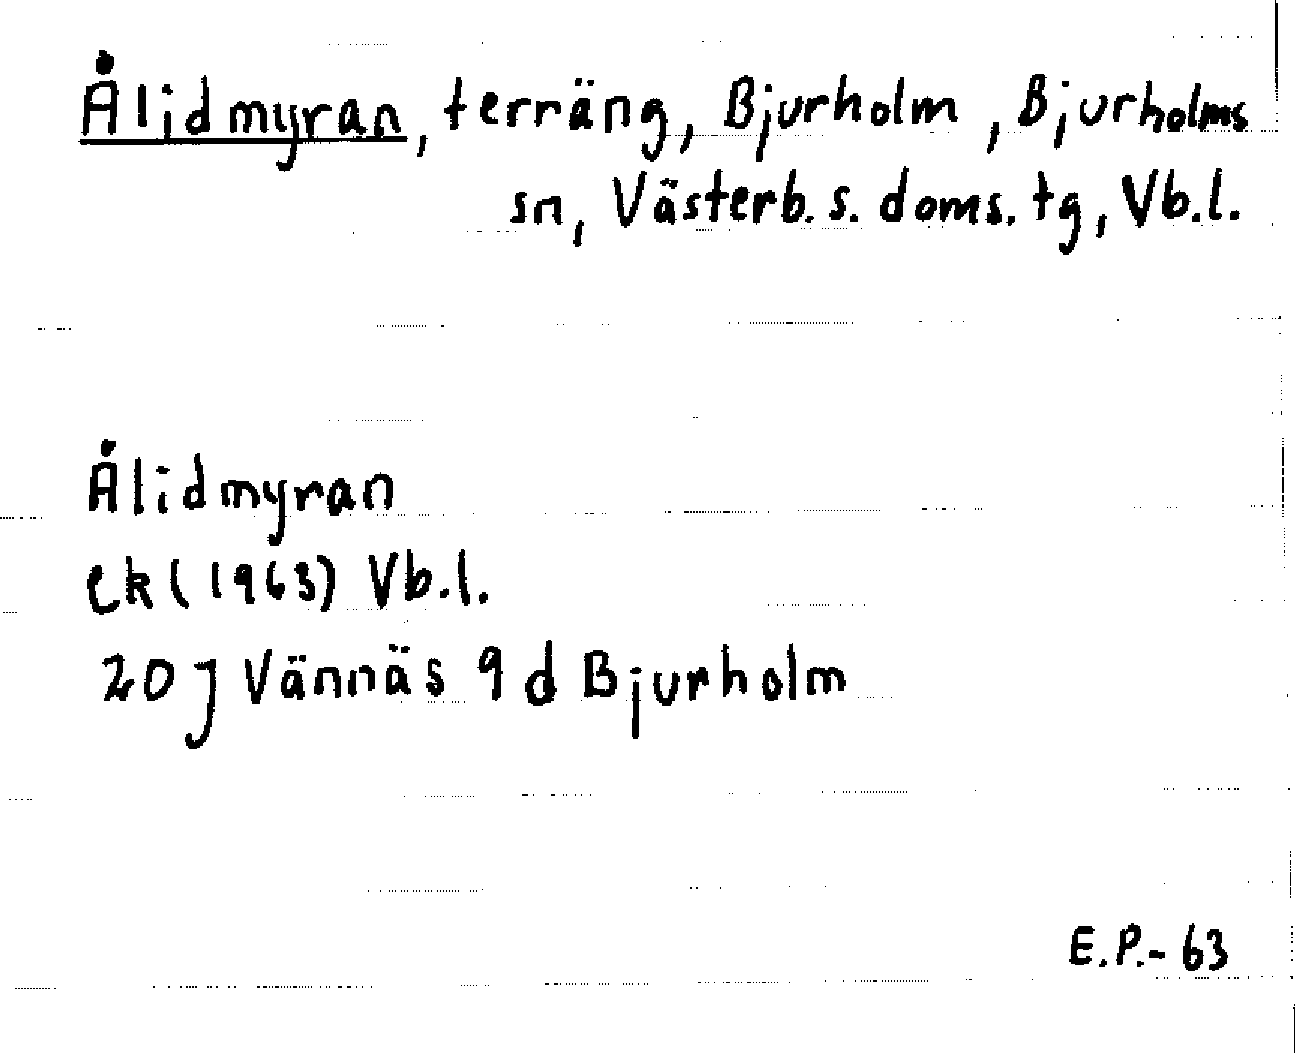 Ålidmyran, terräng, Bjurholm, Bjurholms
sn, Västerb. s. doms. tg, Vb.l.
Ålidmyran
ek (1963) Vb.l.
20 J Vännäs 9 d Bjurholm
E.P.-63